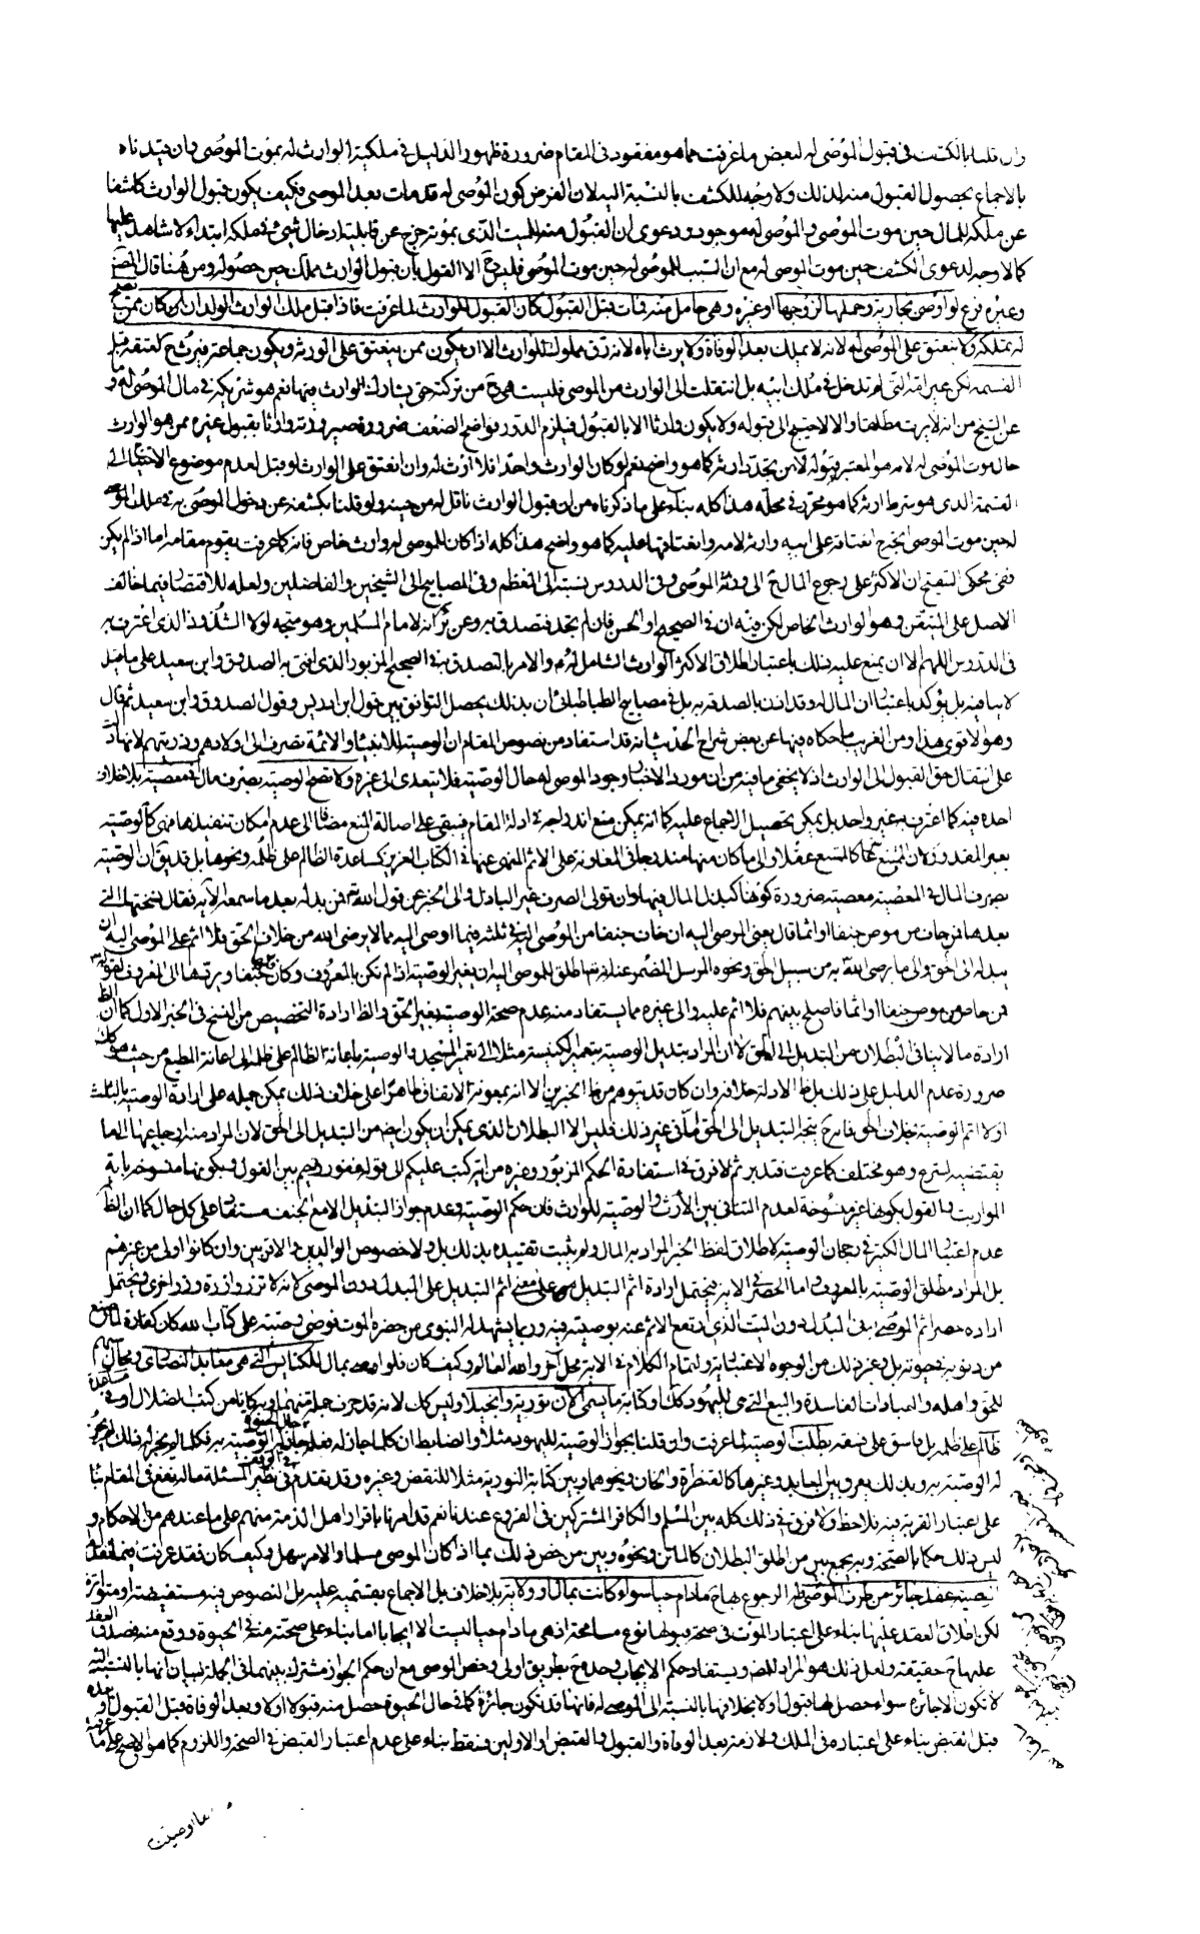 وان قلنا بالكشف في قبول الموصى له لبعض ما عرفت مما هو مفقود في المقام ضرورة ظهور الدليل في ملكية الوارث له بموت الموصى وان قيدناه
بالاجماع بحصول القبول منه لذلك ولا وجه للكشف بالنسبة اليه لان الفرض كون الموصى له قد مات بعد الموصى فكيف يكون قبول الوارث كاشفا
عن ملكه للمال حين موت الموصى والموصى له موجود ودعوى ان القبول منه للميت الذي بموته خرج عن قابلية ادخال شئ في ملكه ابتداء لا شاهد عليها
كما لا وجه لدعوى الكشف حين موت الموصى له مع ان السبب للموصى له حين موت الموصى فليس ح الا القول بان قبول الوارث مملك حين حصوله ومن هنا قال المص
وغيره فرع لو اوصى بجارية وحملها لزوجها او غيره وهي حامل منه فمات قبل القبول كان القبول للوارث لما عرفت فاذا قبل ملك الوارث الولد ان كان ممن يصح
له تملكه ولا ينعتق على الموصى له لانه لا يملك بعد الوفاة ولا يرث اباه لانه رق مملوك للوارث الا ان يكون ممن ينعتق على الورثة ويكون جماعة فيرث ح لعتقه قبل
القسمة لكن غير امه التي لم تدخل في ملك ابيه بل انتقلت الى الوارث من الموصى فليست هي ح من تركته حتى يشارك الوارث فيها نعم هو شريكه في مال الموصى له وما
عن الشيخ من انه لا يرث مطلقا والا لاحتيج الى قبوله ولا يكون وارثا الا بالقبول فيلزم الدور واضح الضعف ضرورة صيرورته وارثا بقبول غيره ممن هو الوارث
حال موت الموصى له لانه هو المعتبر قبوله لا من تجدد ارثه كما هو واضح نعم لو كان الوارث واحدا فلا ارث له وان انعتق على الوارث لو قبل لعدم موضوع
القسمة الذي هو شرط ارثه كما هو محرر في محله هذا كله بناء على ما ذكرناه من ان قبول الوارث ناقل له من حينه ولو قلنا بكشفه عن دخول الموصى به في ملك الموصى
له حين موت الموصى اتجه ح انعتاقه على ابيه وارثه لامه وانعتاقها عليه كما هو واضح هذا كله اذا كان للموصى له وارث خاص فانه كما عرفت يقوم مقامه اما اذا لم يكن
ففي محكى التنقيح ان الاكثر على رجوع المال ح الى ورثة الموصى وفي الدروس نسبته الى المعظم وفي المصابيح الى الشيخين والفاضلين ولعله للاقتصار فيما خالف
الاصل على المتيقن وهو الوارث الخاص لكن فيه ان في الصحيح او الحسن فان لم تجد فتصدق به وعن كره انه لامام المسلمين وهو متجه لولا الشذوذ الذي اعترف به
في الدروس اللهم الا ان يمنع عليه ذلك باعتبار اطلاق الاكثر الوارث الشامل له والامر بالتصدق به في الصحيح المزبور الذي افتى به الصدوق وابن سعيد على ما قيل
لا ينافيه بل يؤكده باعتبار ان المال له وقد اذن بالصدقة به بل في مصابيح الطباطبائي ان بذلك يحصل التوافق بين قول ابن ادريس وقول الصدوق وابن سعيد ثم قال
وهو الاقوى هذا ومن الغريب ما حكاه فيها عن بعض شراح الحديث انه قد استفاد من نصوص المقام ان الوصية للانبياء والائمة تصرف الى اولادهم وذريتهم لانها
على انتقال حق القبول الى الوارث اذ لا يخفى ما فيه من ان مورد الاخبار وجود الموصى له حال الوصية فلا يتعدى الى غيره ولا تصح الوصية بصرف مال في معصية بلا خلاف
اجده فيه كما اعترف به غير واحد بل يمكن تحصيل الاجماع عليه كما انه يمكن منع اندراجه في ادلة المقام فيبقى على اصالة المنع مضافا الى عدم امكان تنفيذها فهي كالوصية
بغير المقدور لان الممتنع شرعا كالممتنع عقلا والى ما كان منها مندرجا في المعاونة على الاثم المنهي عنها في الكتاب العزيز كمساعدة الظالم على ظلمه ونحوها بل قد يق ان الوصية
بصرف المال في المعصية معصية ضرورة كونها كبذل المال فيها وان تولى الصرف غير الباذل والى الخبر عن قول الله تع فمن بدله بعد ما سمعه الآية فقال نسختها التي
بعدها فمن خاف من موص جنفا او اثما قال يعني الموصى اليه ان خاف جنفا من الموصى اليه في ثلثه فيما اوصى اليه مما لا يرضى الله من خلاف الحق فلا اثم على الموصى اليه ان
يبدله الى الحق والى ما يرضى الله به من سبيل الحق ونحوه المرسل المضمر عنه انه اطلق للموصى اليه ان يغير الوصية اذا لم تكن بالمعروف وكان فيها جنف ويردها الى المعروف لقوله
فمن خاف من موص جنفا او اثما فاصلح بينهم فلا اثم عليه والى غيره مما يستفاد منه عدم صحة الوصية بغير الحق والظ ارادة التخصيص من النسخ في الخبر الاول كما ان الظ
ارادة ما لا ينافي البطلان من التبديل الى الحق لا ان المراد تبديل الوصية بتعمير الكنيسة مثلا الى تعمير المسجد والوصية باعانة الظالم على ظلمه الى اعانة المطيع من حيث هو كك
ضرورة عدم الدليل على ذلك بل ظ الادلة خلافه وان كان قد يتوهم من ظ الخبرين الا انه بمعونة الاتفاق ظاهرا على خلاف ذلك يمكن حمله على ارادة الوصية بالثلث
اولا ثم الوصية بخلاف الحق فانه ح يتجه التبديل الى الحق اما في غير ذلك فليس الا البطلان الذي يمكن ان يكون ايض من التبديل الى الحق لان المراد منه ارجاعها الى ما
يقتضيه الشرع وهو مختلف كما عرفت فتدبر ثم لا فرق في استفادة الحكم المزبور وغيره من آية كتب عليكم الى قوله غفور رحيم بين القول بكونها منسوخة باية
المواريث والقول بكونها غير منسوخة لعدم التنافي بين الارث والوصية للوارث فان حكم الوصية وعدم جواز التبديل الا مع الجنف مستفاد على كل حال كما ان الظ
عدم اعتبار المال الكثير في رجحان الوصية لاطلاق لفظ الخير المراد به المال ولم يثبت تقييده بذلك بل ولا خصوص الوالدين والاقربين وان كانوا اولى من غيرهم
بل المراد مطلق الوصية بالمعروف واما الحصر في الاية فيحتمل ارادة اثم التبديل على معنى اثم التبديل على المبدل دون الموصى لانه لا تزر وازرة وزر اخرى ويحتمل
ارادة حصر اثم الموصى به في المبدل دون الميت الذي ارتفع الاثم عنه بوصيته فيه وربما يشهد له النبوي من حضره الموت فوضع وصيته على كتاب الله كان كفارة لما ضيع
من ذنوبه في حيوته بل وغير ذلك من الوجوه الاعتبارية ولتمام الكلام في الاية محل آخر والله العالم وكيف كان فلو اوصى بمال للكنائس التي هي معابد النصارى ومحال
للحق واهله والعبادات الفاسدة والبيع التي هي لليهود كك او كتابة ما يسمى الآن تورية وانجيلا وليس كك لانه قد حرف جملة منهما او بكتابة من كتب الضلال او في مساعدة
ظالم على ظلمه بل وفاسق على فسقه بطلت الوصية لما عرفت وان قلنا بجواز الوصية لليهود مثلا والضابط ان كلما جاز له فعله حال الحيوة جاز له الوصية به فكلما لم يجز له فعله لم يجز
له الوصية به وبذلك يعرف بين المعابد وغيرها كالقنطرة والخان ونحوهما وبين كتابة التورية مثلا للنقض وغيره وقد يقدم في نظير المسئلة في الوقف ماله نفع في المقام بناء
على اعتبار القربة فيه فلاحظ ولا فرق في ذلك كله بين المسلم والكافر المشتركين في الفروع عندنا نعم قد امرنا باقرار اهل الذمة منهم على ما عندهم من الاحكام و
ليس ذلك حكما بالصحة وبه يجمع بين من اطلق البطلان كالماتن ونحوه وبين من خص ذلك بما اذا كان الموصى مسلما والامر سهل وكيف كان فقد عرفت فيما تقدم ان
الوصية عقد جائز من طرف الموصى ظ له الرجوع بها ح مادام حيا سواء كانت بمال او ولاية بلا خلاف بل الاجماع بقسميه عليه بل النصوص فيه مستفيضة او متواترة
لكن اطلاق العقد عليها بناء على اعتبار الموت في صحة قبولها نوع مسامحة اذ هي مادام حيا ليست الا ايجابا اما بناء على صحته منه في الحيوة ووقع منه فصدق العقد
عليها ح حقيقة ولعل ذلك هو المراد للمص ويستفاد حكم الايجاب وحده ح بطريق اولى وخص الموصى مع ان حكم الجواز مشترك بينهما في الجملة لبيان انها بالنسبة اليه
لا تكون الا جائزة سواء حصل لها قبول اولا بخلافها بالنسبة الى الموصى له فانها قد تكون جائزة كما في حال الحيوة حصل منه قبول اولا وبعد الوفاة قبل القبول او بعده
قبل القبض بناء على اعتباره في الملك ولازمة بعد الوفاة والقبول والقبض او الاولين فقط بناء على عدم اعتبار القبض في الصحة واللزوم كما هو الاصح على ما